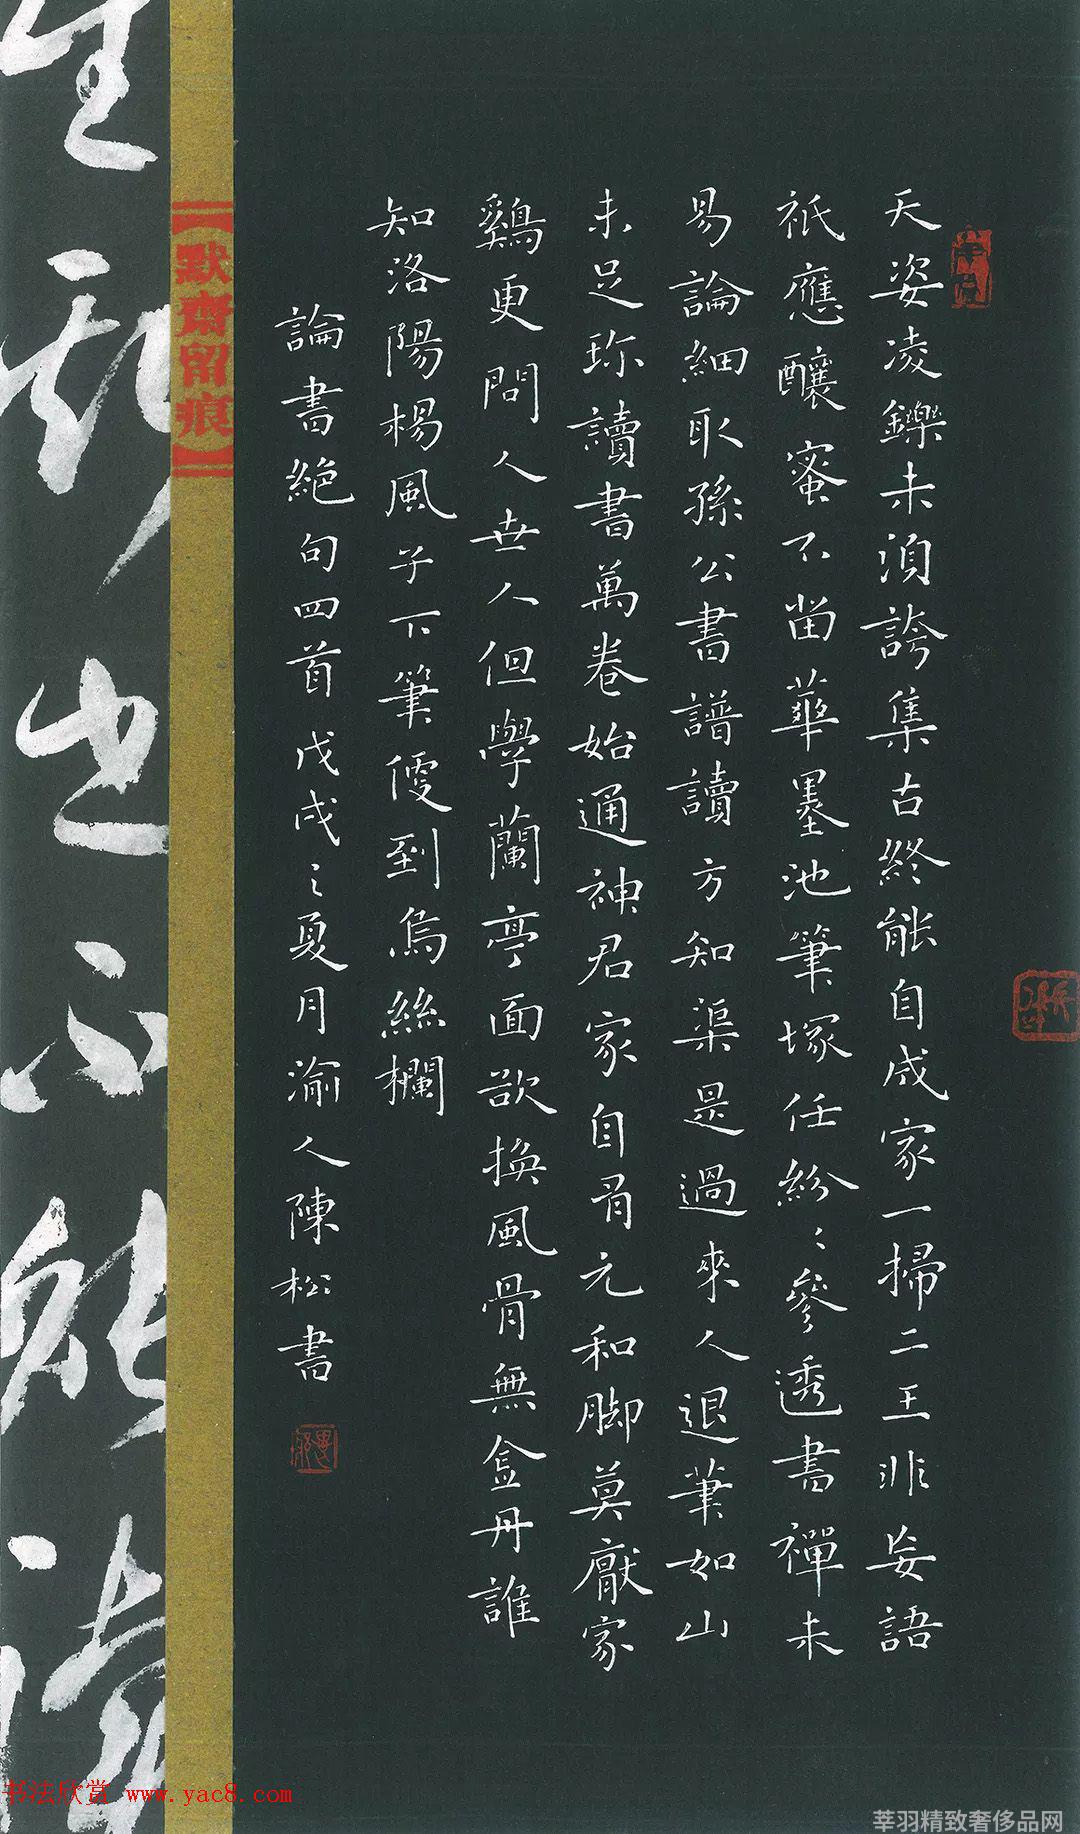 天姿凌鑠未須誇集古終能自成家一掃二王非妄語
祇應釀蜜不留華墨池筆塚任紛〻參透書禪未
易論細取孫公書譜讀方知渠是過來人退筆如山
未足珎讀書萬卷始通神君家自有元和脚莫厭家
鷄更問人世人但學蘭亭面欲換風骨無金丹誰
知洛陽楊風子下筆便到烏絲欄
論書絕句四首戊戌之夏月渝人陳松書
【默齋留痕】
也不能
书法欣赏 www.yac8.com
莘羽精致奢侈品网